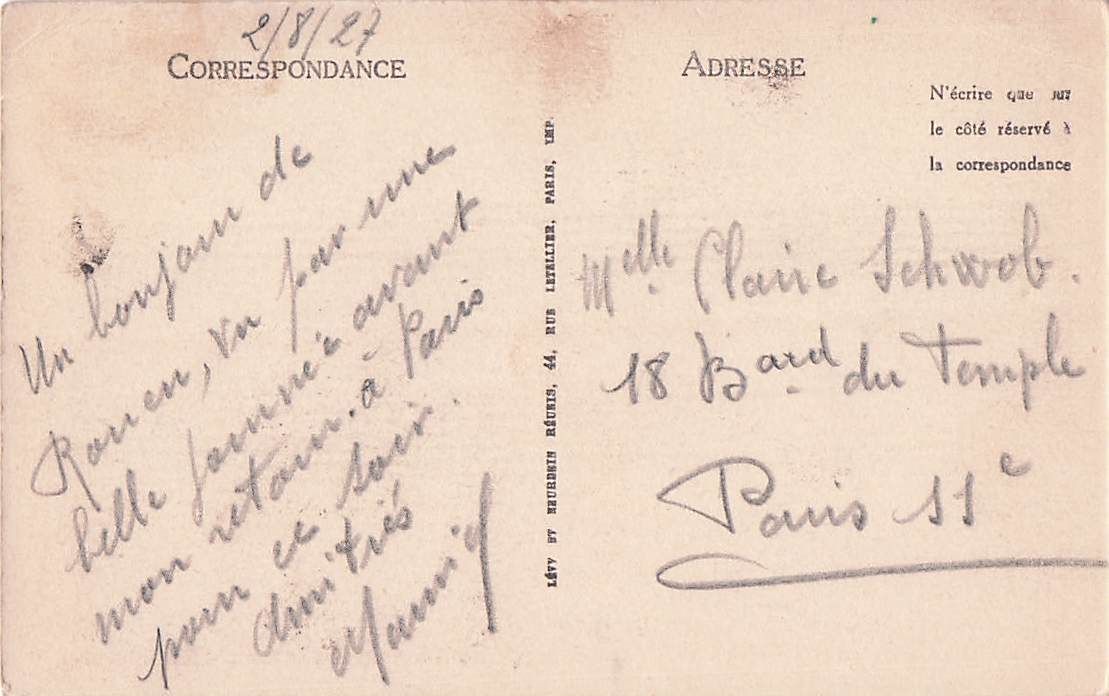 2/8/27
CORRESPONDANCE
Un bonjour de
Rouen, vu par une
belle journée avant
mon retour à Paris
pour ce soir.
Amitiés
ADRESSE
N'écrire que sur
le côté réservé à
la correspondance
Melle Claire Schwob.
18 Bard du Temple
Paris 11e
LÉVY ET NEURDEIN RÉUNIS, 44, RUE LETELLIER, PARIS, IMP.